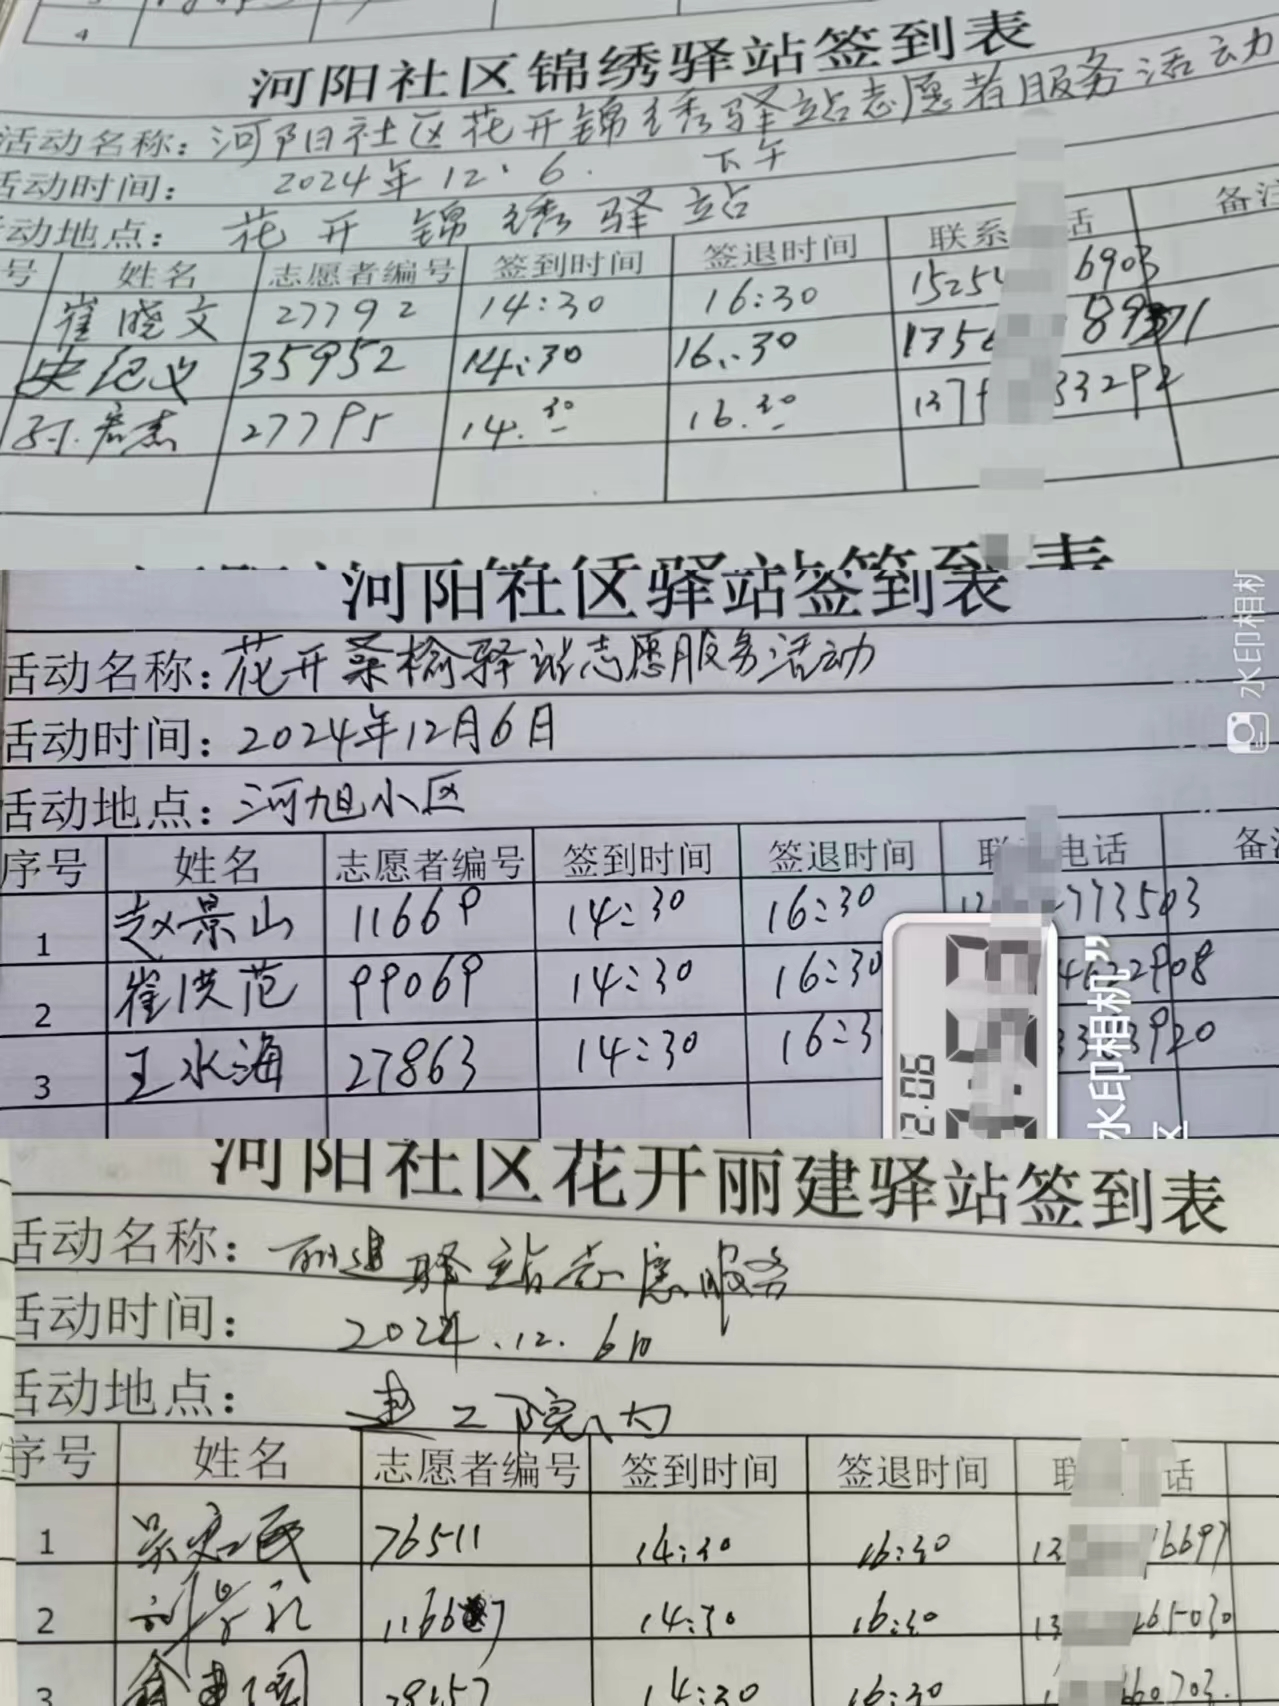 4
河阳社区锦绣驿站签到表
活动名称：河阳社区花开锦绣驿站志愿者服务活动
活动时间： 2024年12.6. 下午
活动地点：花开锦绣驿站
号 姓名 志愿者编号 签到时间 签退时间 联系 话 备注
崔晓文 27792 14:30 16:30 15254 6903
35952 14:30 16:30 1356
27795 14.30 16.30 137 33292
河阳社区驿站签到表
活动名称：花开桑榆驿站志愿服务活动
活动时间：2024年12月6日
活动地点：河旭小区
序号 姓名 志愿者编号 签到时间 签退时间 联 电话 备注
1 赵景山 11669 14:30 16:30 773503
2 崔洪范 99069 14:30 16:30 4622908
3 王水海 27863 14:30 16:3 3920
水印相机
2.06
水印相机”
河阳社区花开丽建驿站签到表
活动名称：丽建驿站志愿服务
活动时间：2024.12.6日
活动地点：建工院内
序号 姓名 志愿者编号 签到时间 签退时间 联 话
1 76511 14:30 16:30 13 16697
2 14:30 16:30 13 265030
3 14:30 16:30 1 660703.